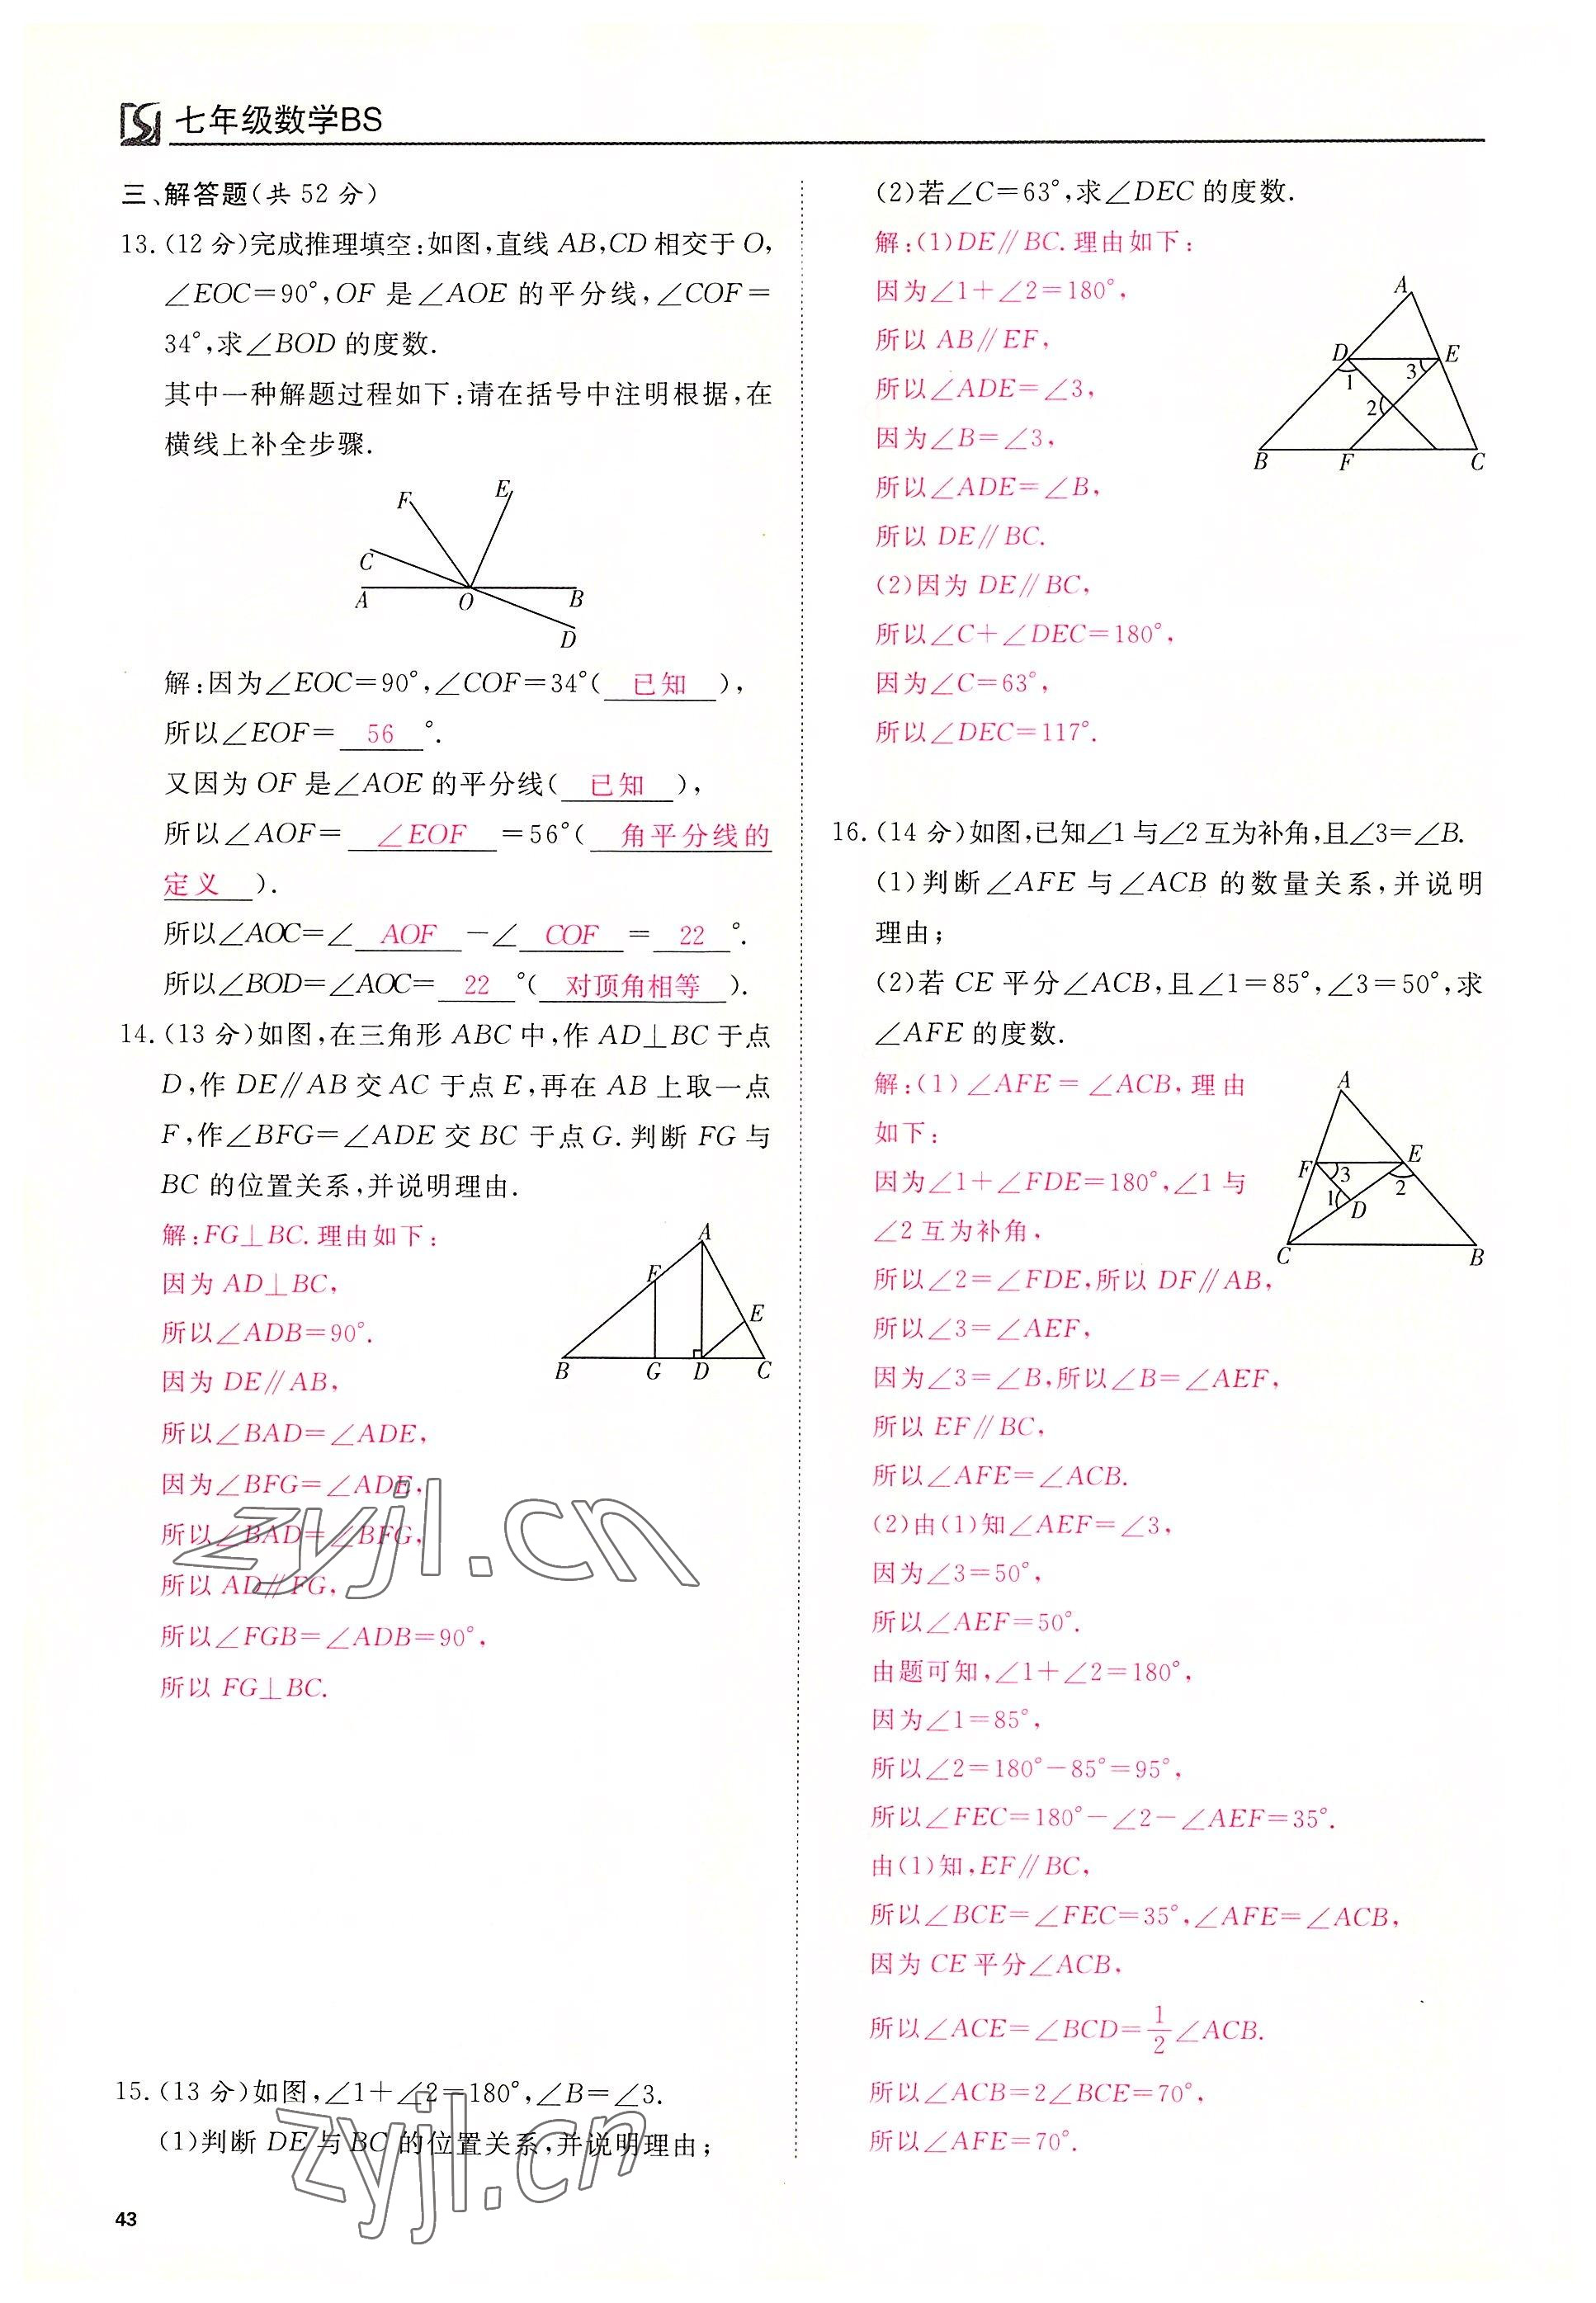 七年级数学BS
三、解答题(共 52 分)
13. (12 分)完成推理填空:如图,直线 AB,CD 相交于 O,
∠EOC=90°,OF 是∠AOE 的平分线,∠COF=
34°,求∠BOD 的度数.
其中一种解题过程如下:请在括号中注明根据,在
横线上补全步骤.
F
E
C
A
O
B
D
解:因为∠EOC=90°,∠COF=34°( 已知 ),
所以∠EOF= 56 °.
又因为 OF 是∠AOE 的平分线( 已知 ),
所以∠AOF= ∠EOF =56°( 角平分线的
定义 ).
所以∠AOC=∠ AOF -∠ COF = 22 °.
所以∠BOD=∠AOC= 22 °( 对顶角相等 ).
14. (13 分)如图,在三角形 ABC 中,作 AD⊥BC 于点
D,作 DE∥AB 交 AC 于点 E,再在 AB 上取一点
F,作∠BFG=∠ADE 交 BC 于点 G. 判断 FG 与
BC 的位置关系,并说明理由.
解:FG⊥BC. 理由如下:
因为 AD⊥BC,
所以∠ADB=90°.
因为 DE∥AB,
所以∠BAD=∠ADE,
因为∠BFG=∠ADE,
所以∠BAD=∠BFG,
所以 AD∥FG,
所以∠FGB=∠ADB=90°,
所以 FG⊥BC.
A
F
E
B
G
D
C
zyjl.cn
15. (13 分)如图,∠1+∠2=180°,∠B=∠3.
(1)判断 DE 与 BC 的位置关系,并说明理由;
zyjl.cn
43
(2)若∠C=63°,求∠DEC 的度数.
解:(1)DE∥BC. 理由如下:
因为∠1+∠2=180°,
所以 AB∥EF,
所以∠ADE=∠3,
因为∠B=∠3,
所以∠ADE=∠B,
所以 DE∥BC.
(2)因为 DE∥BC,
所以∠C+∠DEC=180°,
因为∠C=63°,
所以∠DEC=117°.
A
D
E
1
3
2
B
F
C
16. (14 分)如图,已知∠1与∠2互为补角,且∠3=∠B.
(1)判断∠AFE 与∠ACB 的数量关系,并说明
理由;
(2)若 CE 平分∠ACB,且∠1=85°,∠3=50°,求
∠AFE 的度数.
解:(1)∠AFE=∠ACB,理由
如下:
因为∠1+∠FDE=180°,∠1与
∠2互为补角,
所以∠2=∠FDE,所以 DF∥AB,
所以∠3=∠AEF,
因为∠3=∠B,所以∠B=∠AEF,
所以 EF∥BC,
所以∠AFE=∠ACB.
(2)由(1)知∠AEF=∠3,
因为∠3=50°,
所以∠AEF=50°.
由题可知,∠1+∠2=180°,
因为∠1=85°,
所以∠2=180°-85°=95°,
所以∠FEC=180°-∠2-∠AEF=35°.
由(1)知,EF∥BC,
所以∠BCE=∠FEC=35°,∠AFE=∠ACB,
因为 CE 平分∠ACB,
所以∠ACE=∠BCD=1/2∠ACB.
所以∠ACB=2∠BCE=70°,
所以∠AFE=70°.
A
F
E
3
2
1
D
C
B